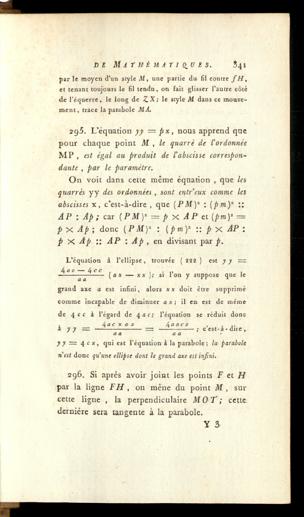 DE MATHÉMATIQUES. 341
par le moyen d'un style M, une partie du fil contre fH,
et tenant toujours le fil tendu, on fait glisser l'autre côté
de l'équerre, le long de ZX; le style M dans ce mouve-
ment, trace la parabole MA.
295. L'équation yy = px, nous apprend que
pour chaque point M, le quarré de l'ordonnée
MP, est égal au produit de l'abscisse correspon-
dante, par le paramètre.
On voit dans cette même équation, que les
quarrés yy des ordonnées, sont entr'eux comme les
abscisses x, c'est-à-dire, que (PM)² : (pm)² ::
AP : Ap; car (PM)² = p × AP et (pm)² =
p × Ap; donc (PM)² : (pm)² :: p × AP :
p × Ap :: AP : Ap, en divisant par p.
L'équation à l'ellipse, trouvée (222) est yy =
4ac — 4cc / aa (ax — xx); si l'on y suppose que le
grand axe a est infini, alors xx doit être supprimé
comme incapable de diminuer ax; il en est de même
de 4cc à l'égard de 4ac; l'équation se réduit donc
à yy = 4ac × ax / aa = 4aacx / aa; c'est-à-dire,
yy = 4cx, qui est l'équation à la parabole; la parabole
n'est donc qu'une ellipse dont le grand axe est infini.
296. Si après avoir joint les points F et H
par la ligne FH, on mène du point M, sur
cette ligne, la perpendiculaire MOT; cette
dernière sera tangente à la parabole.
Y 3